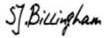 SJ. Billingham